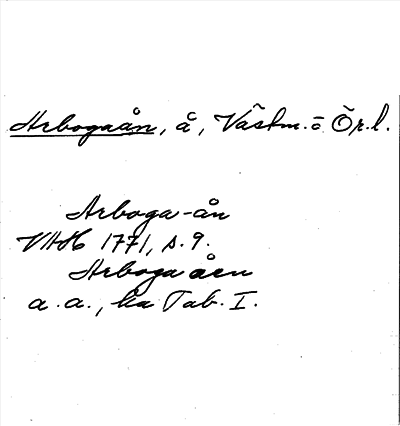 Arbogaån, å, Västm. o Ör. l.
Arboga-ån
VAH 1771, s. 9.
Arboga åen
a. a., ka Tab. I.